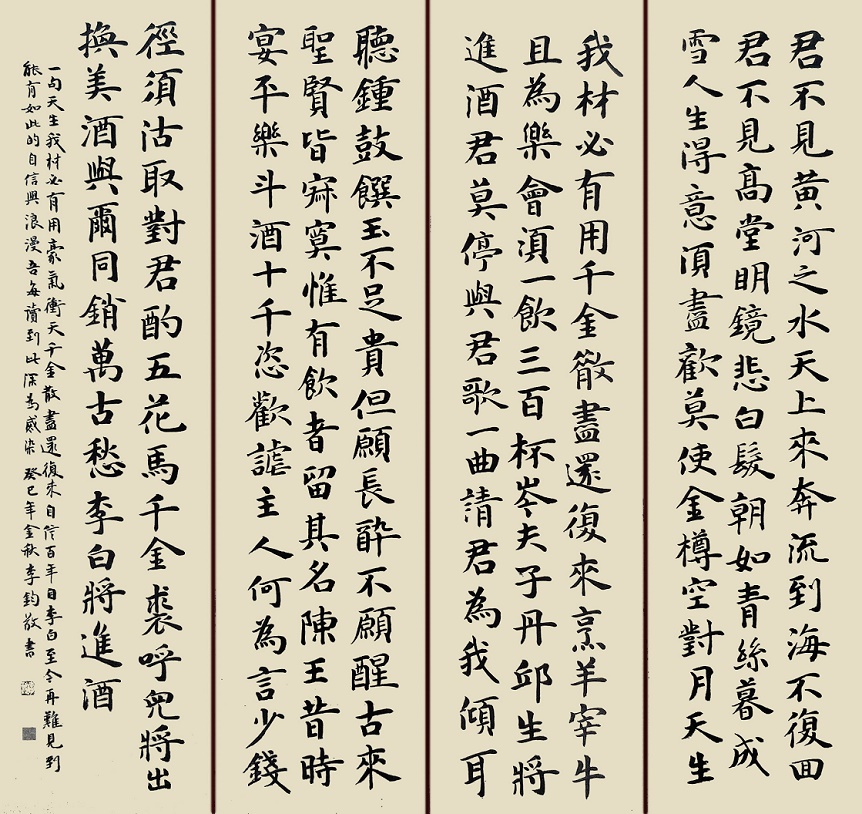 君不見黃河之水天上來奔流到海不復回
君不見高堂明鏡悲白髮朝如青絲暮成
雪人生得意須盡歡莫使金樽空對月天生
我材必有用千金散盡還復來烹羊宰牛
且為樂會須一飲三百杯岑夫子丹邱生將
進酒君莫停與君歌一曲請君為我傾耳
聽鍾鼓饌玉不足貴但願長醉不願醒古來
聖賢皆寂寞惟有飲者留其名陳王昔時
宴平樂斗酒十千恣歡謔主人何為言少錢
徑須沽取對君酌五花馬千金裘呼兒將出
換美酒與爾同銷萬古愁李白將進酒
一句天生我材必有用豪氣衝天千金散盡還復來自信百年自李白至今再難見到
能有如此的自信與浪漫吾每讀到此深為感染癸巳年金秋李鈞敬書